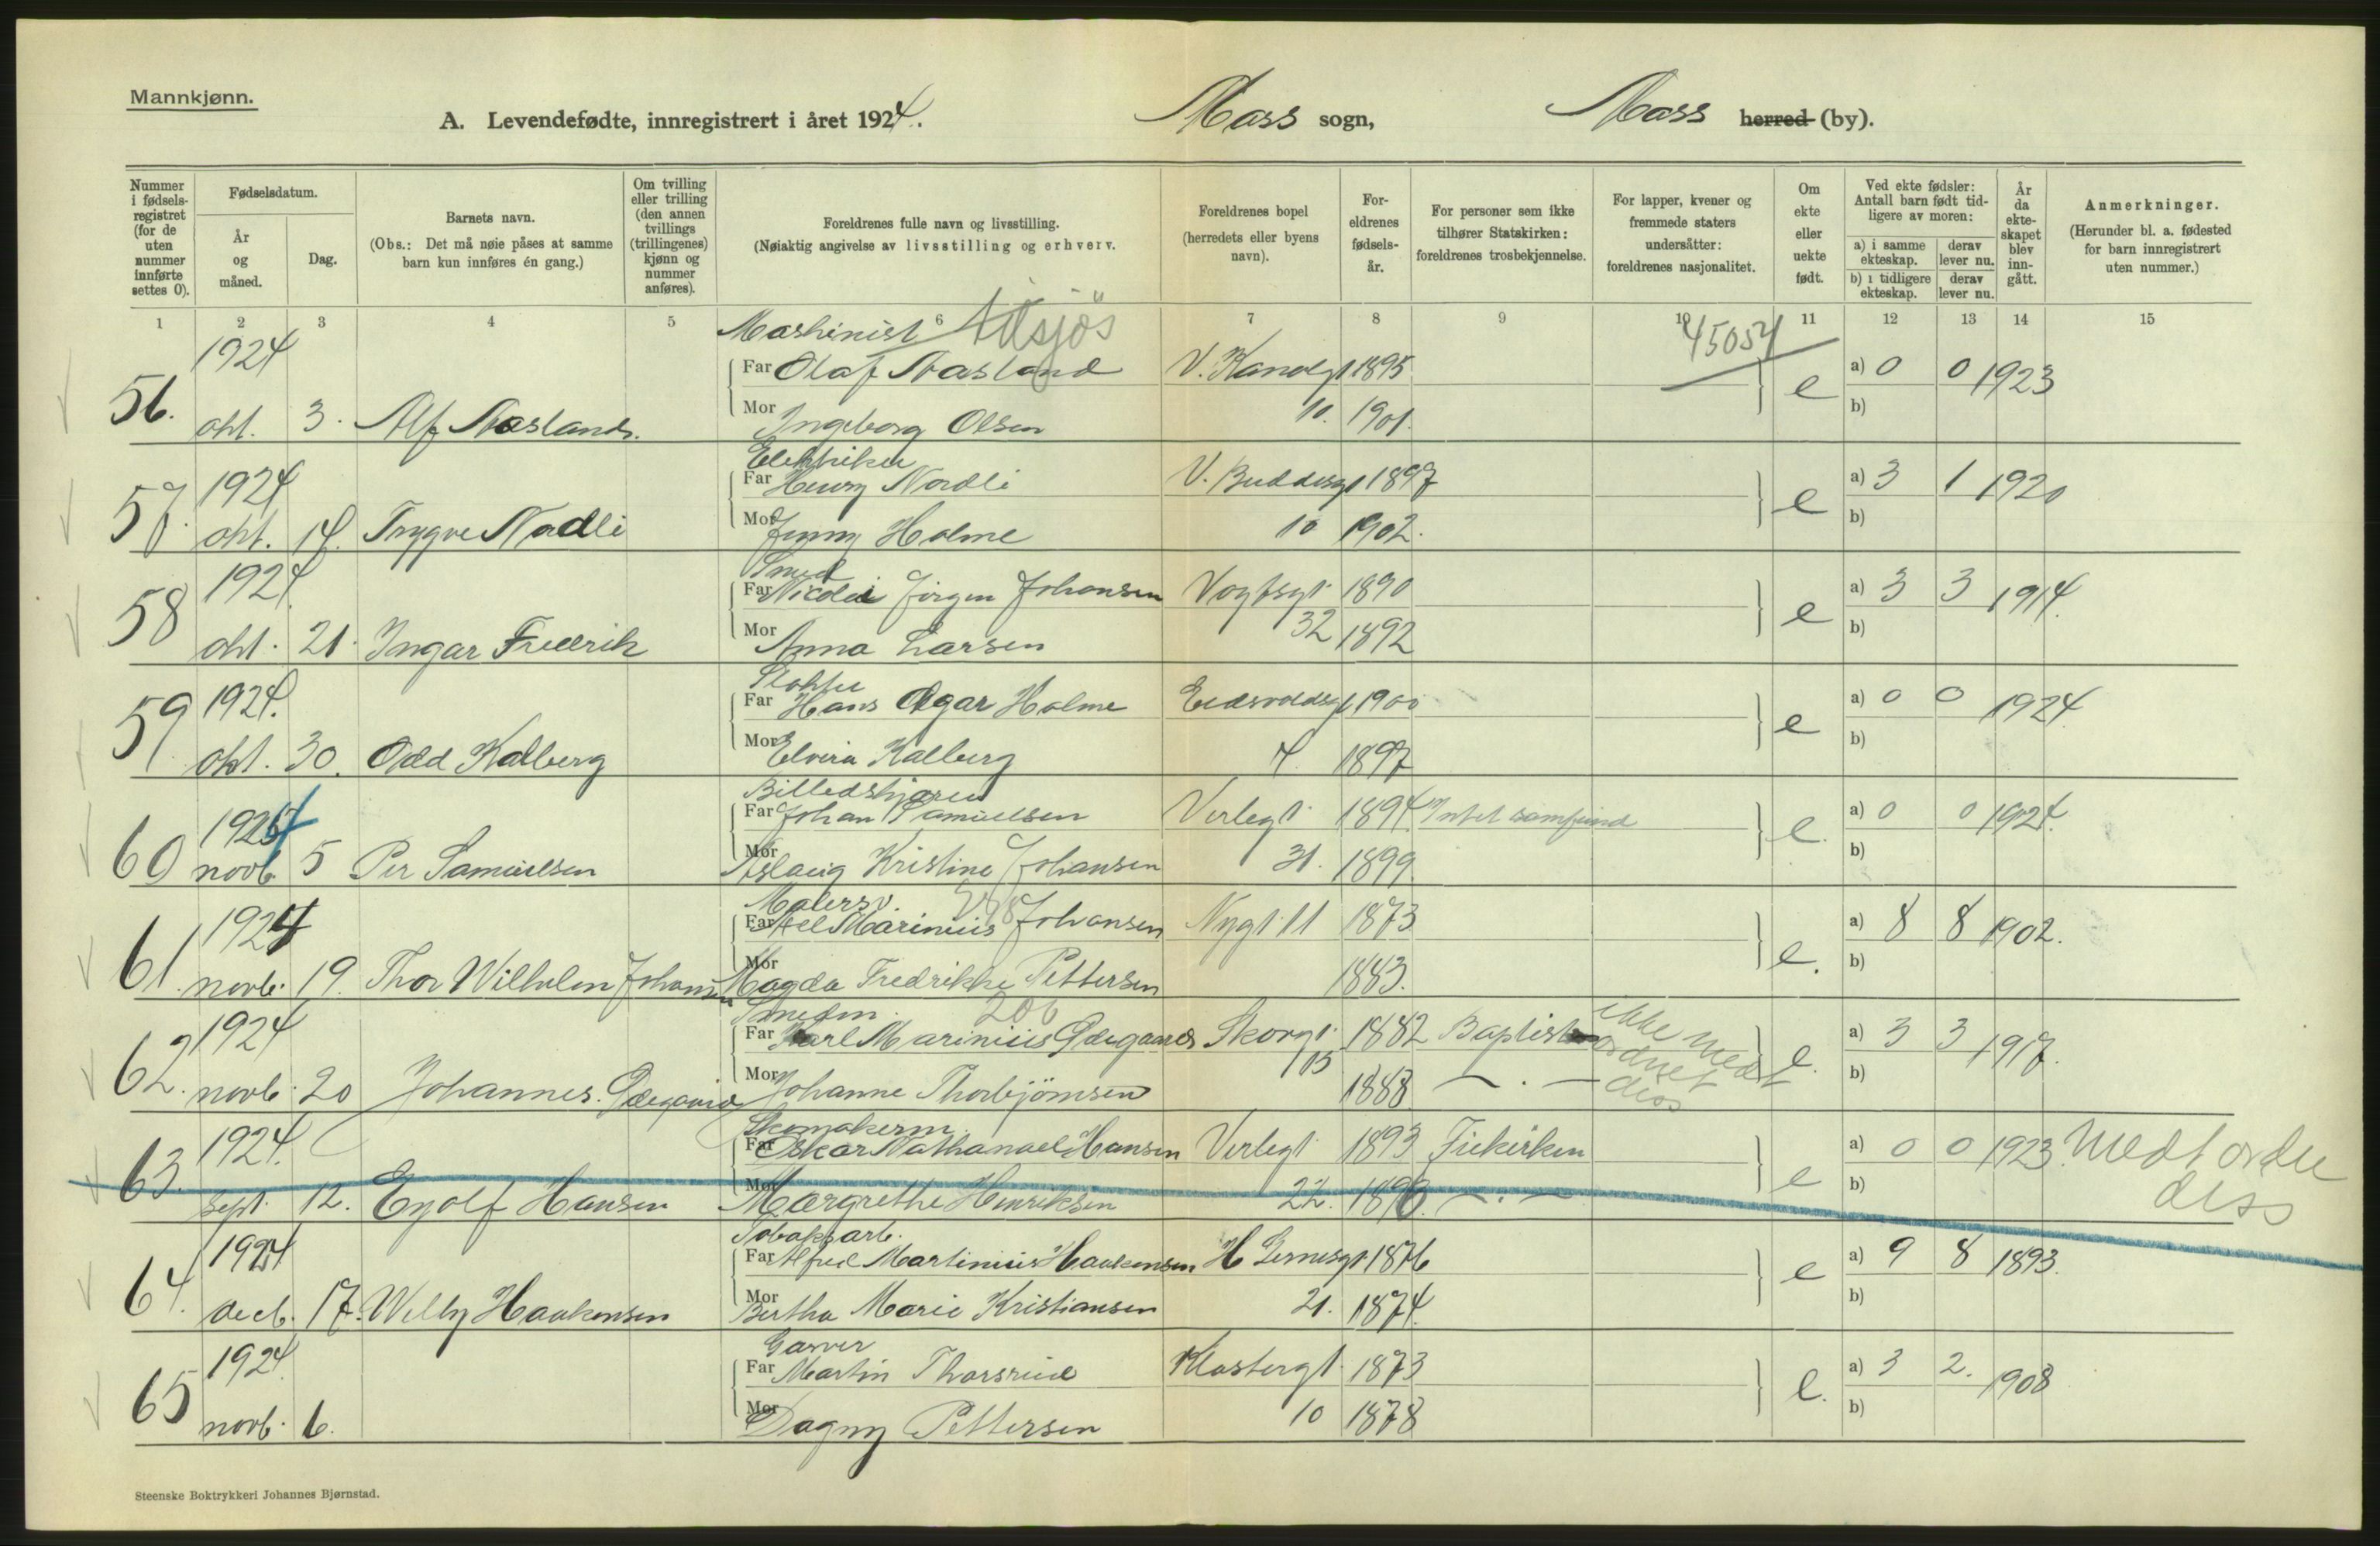 Mannkjønn.
A. Levendefødte, innregistrert i året 1924.
Moss sogn,
Moss herred (by).
Nummer i fødsels-registret (for de uten nummer innførte settes 0).
Fødselsdatum.
År og måned.
Dag.
Barnets navn.
(Obs.: Det må nøie påses at samme barn kun innføres én gang.)
Om tvilling eller trilling (den annen tvillings (trillingenes) kjønn og nummer anføres).
Foreldrenes fulle navn og livsstilling.
(Nøiaktig angivelse av livsstilling og erhverv.
Foreldrenes bopel (herredets eller byens navn).
For-eldrenes fødsels-år.
For personer som ikke tilhører Statskirken: foreldrenes trosbekjennelse.
For lapper, kvener og fremmede staters undersåtter: foreldrenes nasjonalitet.
Om ekte eller uekte født.
Ved ekte fødsler: Antall barn født tid-ligere av moren:
a) i samme ekteskap.
derav lever nu.
b) i tidligere ekteskap.
derav lever nu.
År da ekte-skapet blev inn-gått.
Anmerkninger.
(Herunder bl. a. fødested for barn innregistrert uten nummer.)
1 2 3 4 5 6 7 8 9 10 11 12 13 14 15
Maskinist
1924
45054
Far Olaf Aasland V. Kanalgt 1895 e a) 0 0 1923
56. okt. 3. Alf Aasland.
Mor Ingeborg Olsen 10. 1901. b)
Elektriker
1924 Far Henry Nordli V. Buddesgt 1897 e a) 3 1 1920
57. okt. 14. Trygve Nordli
Mor Jenny Holme 10 1902. b)
Smed
1924. Far Nicolai Jörgen Johansen Vogtsgt. 1890 e a) 3 3 1914.
58 okt. 21. Ingar Fredrik
Mor Anna Larsen 32 1892 b)
1924. Far Hans Agar Holme Eidsvoldsgt 1900 e a) 0 0 1924
59 okt. 30. Odd Kalberg
Mor Elvira Kalberg 4 1897 b)
Billedskjærer
1924 Far Johan Samuelsen Verlegt. 1894. Intet samfund e. a) 0 0 1924.
60 novb. 5 Per Samuelsen
Mor Aslaug Kristine Johansen 31. 1899. b)
Malersv.
1924 Far Axel Marinius Johansen Nygt 11 1873 e. a) 8 8 1902.
61. novb. 19. Thor Wilhelm Johansen
Mor Magda Fredrikke Pettersen 1883. b)
Smedm. 206
1924 Far Karl Marinius Ødegaard Skoggt. 1882 Baptist e. a) 3 3 1917.
ikke medt ordnet diss
62. novb. 20 Johannes Ødegaard
Mor Johanne Thorbjörnsen 105 1888 — . — b)
Skomakerm.
1924. Far Oskar Nathanael Hansen Verlegt. 1893 Frikirken e a) 0 0 1923. Medt ordn diss
63. sept. 12. Eyolf Hansen
Mor Margrethe Henriksen 22. 1898. — . — b)
Tobaksarb.
1924 Far Alfred Martinius Haakensen H Gernesgt 1876 e a) 9 8 1893.
64. decb. 17. Willy Haakensen
Mor Bertha Marie Kristiansen 21. 1874. b)
Garver
1924. Far Martin Thorsrud Klostergt. 1873 e. a) 3 2. 1908
65 novb. 6.
Mor Dagny Pettersen 10 1878 b)
Steenske Boktrykkeri Johannes Bjørnstad.